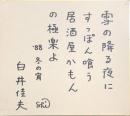 雪の降る夜に
すっぽん喰う
居酒屋かもん
の極楽よ
'88 冬の宵
白井佳夫